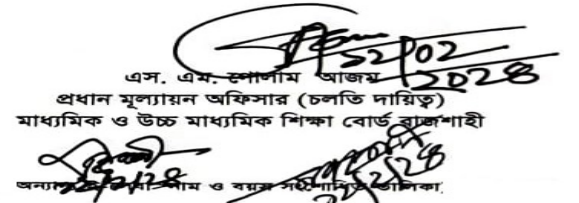 ১২/০২
২০২৪
এস. এম. গোলাম আজম
প্রধান মূল্যায়ন অফিসার (চলতি দায়িত্ব)
মাধ্যমিক ও উচ্চ মাধ্যমিক শিক্ষা বোর্ড রাজশাহী
নাম ও বয়স সংশোধিত তালিকা